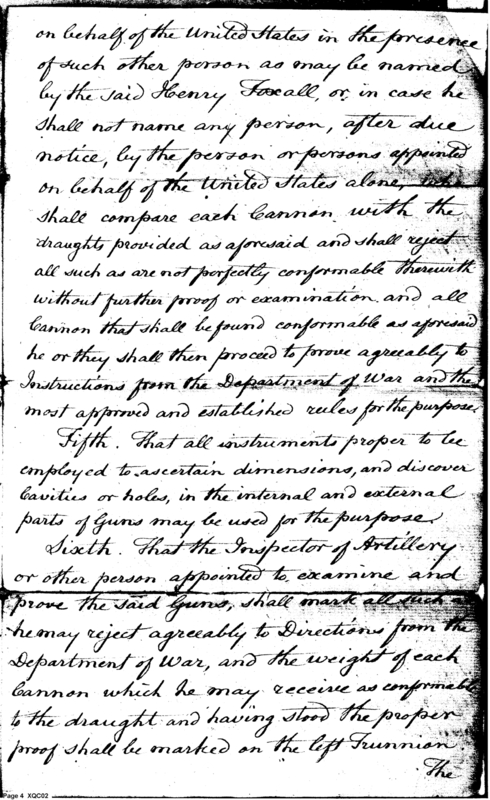 on behalf of the United States in the presence
of such other person as may be named
by the said Henry Foxall, or, in case he
shall not name any person, after due
notice, by the person or persons appointed
on behalf of the United States alone, who
shall compare each Cannon with the
draughts provided as aforesaid and shall reject
all such as are not perfectly conformable therewith
without further proof or examination and all
Cannon that shall be found conformable as aforesaid
he or they shall then proceed to prove agreeably to
Instructions from the Department of War and the
most approved and established rules for the purpose.
Fifth. That all instruments proper to be
employed to ascertain dimensions, and discover
Cavities or holes, in the internal and external
parts of Guns may be used for the purpose.
Sixth. That the Inspector of Artillery
or other person appointed to examine and
prove the said Guns, shall mark all such as
he may reject agreeably to Directions from the
Department of War, and the weight of each
Cannon which he may receive as conformable
to the draught and having stood the proper
proof shall be marked on the left Trunnion
The
Page 4 XQC02